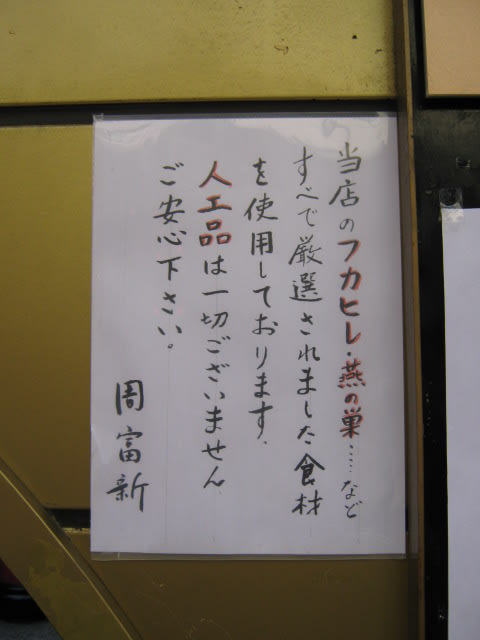 当店のフカヒレ・燕の巣……など
すべて厳選されました食材
を使用しております.
人工品は一切ございません
ご安心下さい。
周富新